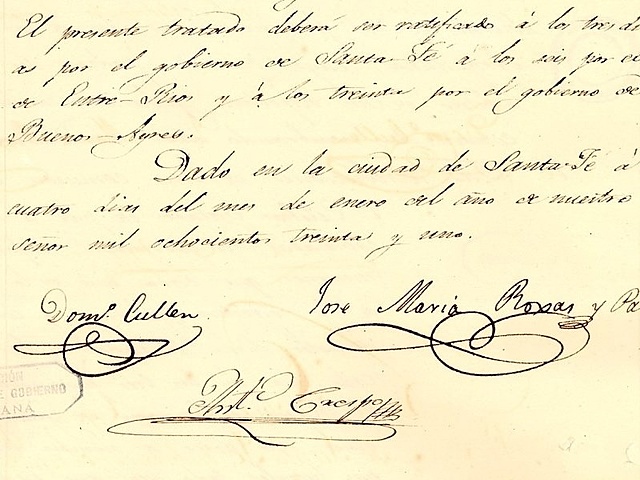 El presente tratado deberá ser ratificado á los tres di
as por el gobierno de Santa-Fé á los seis por el
de Entre-Rios y á los treinta por el gobierno de
Buenos-Ayres.
Dado en la ciudad de Santa-Fé á
cuatro dias del mes de enero del año de nuestro
señor mil ochocientos treinta y uno.
Dom.º Cullen.
Jose Maria Roxas y Pa
Ant.º Crespo
IÓN
E GOBIERNO
ANÁ